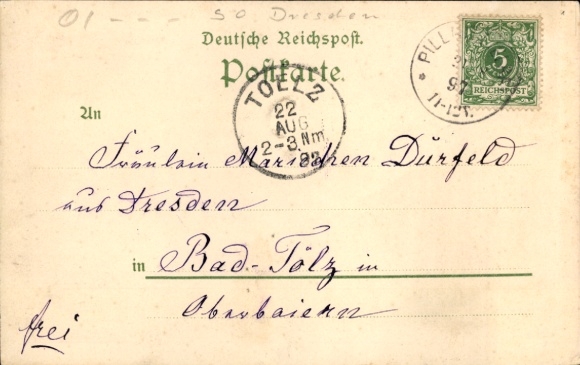 01 - - - SO Dresden
Deutsche Reichspost.
Postkarte.
5
REICHSPOST
PILL
97
11-12V.
TOELZ
22
AUG
2-3.Nm.
An
Fräulein Mariechen Dürfeld
aus Dresden
in Bad-Tölz in
Oberbaiern
frei